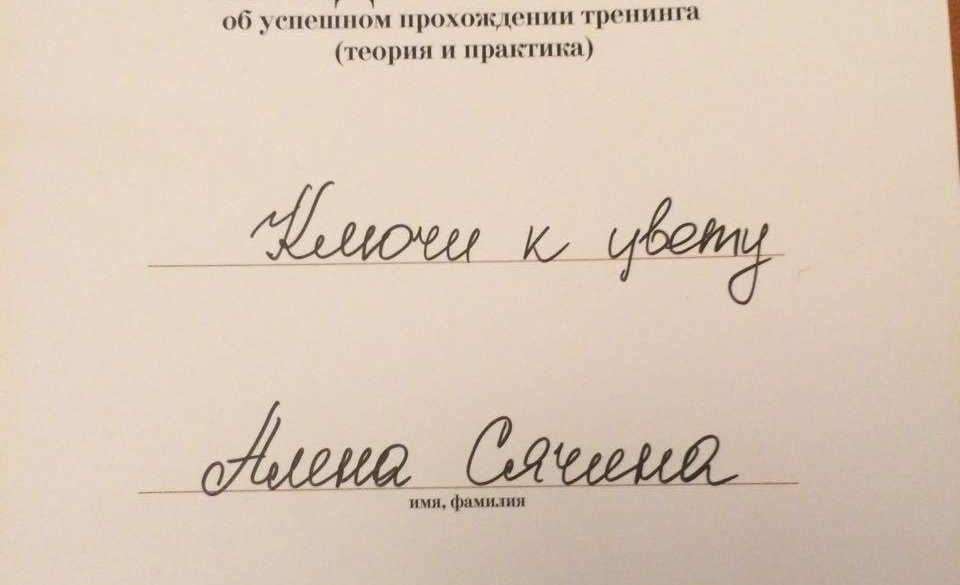 об успешном прохождении тренинга
(теория и практика)
Ключи к цвету
Алена Сячина
имя, фамилия